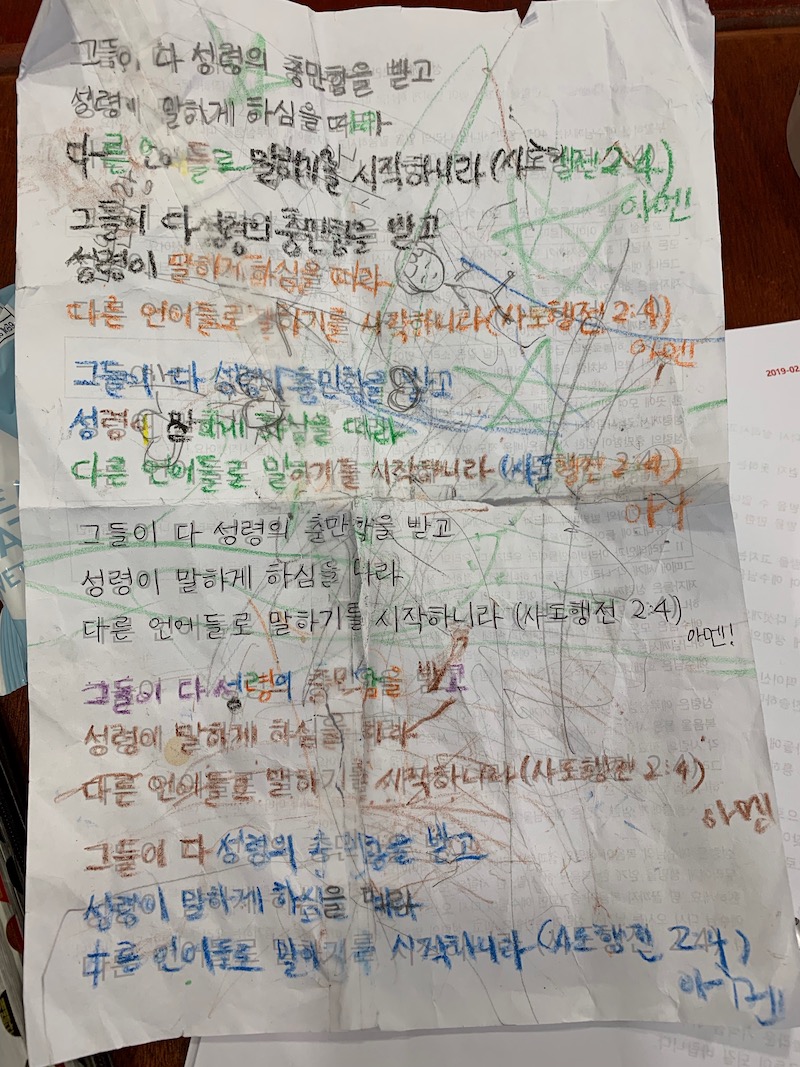 그들이 다 성령의 충만함을 받고
성령이 말하게 하심을 따라
다른 언어들로 말하기를 시작하니라 (사도행전 2:4)
아멘
그들이 다 성령의 충만함을 받고
성령이 말하게 하심을 따라
다른 언어들로 말하기를 시작하니라 (사도행전 2:4)
아멘
그들이 다 성령의 충만함을 받고
성령이 말하게 하심을 따라
다른 언어들로 말하기를 시작하니라 (사도행전 2:4)
2019-02
그들이 다 성령의 충만함을 받고
성령이 말하게 하심을 따라
다른 언어들로 말하기를 시작하니라 (사도행전 2:4)
아멘!
그들이 다 성령의 충만함을 받고
성령이 말하게 하심을 따라
다른 언어들로 말하기를 시작하니라 (사도행전 2:4)
아멘
그들이 다 성령의 충만함을 받고
성령이 말하게 하심을 따라
다른 언어들로 말하기를 시작하니라 (사도행전 2:4)
아멘